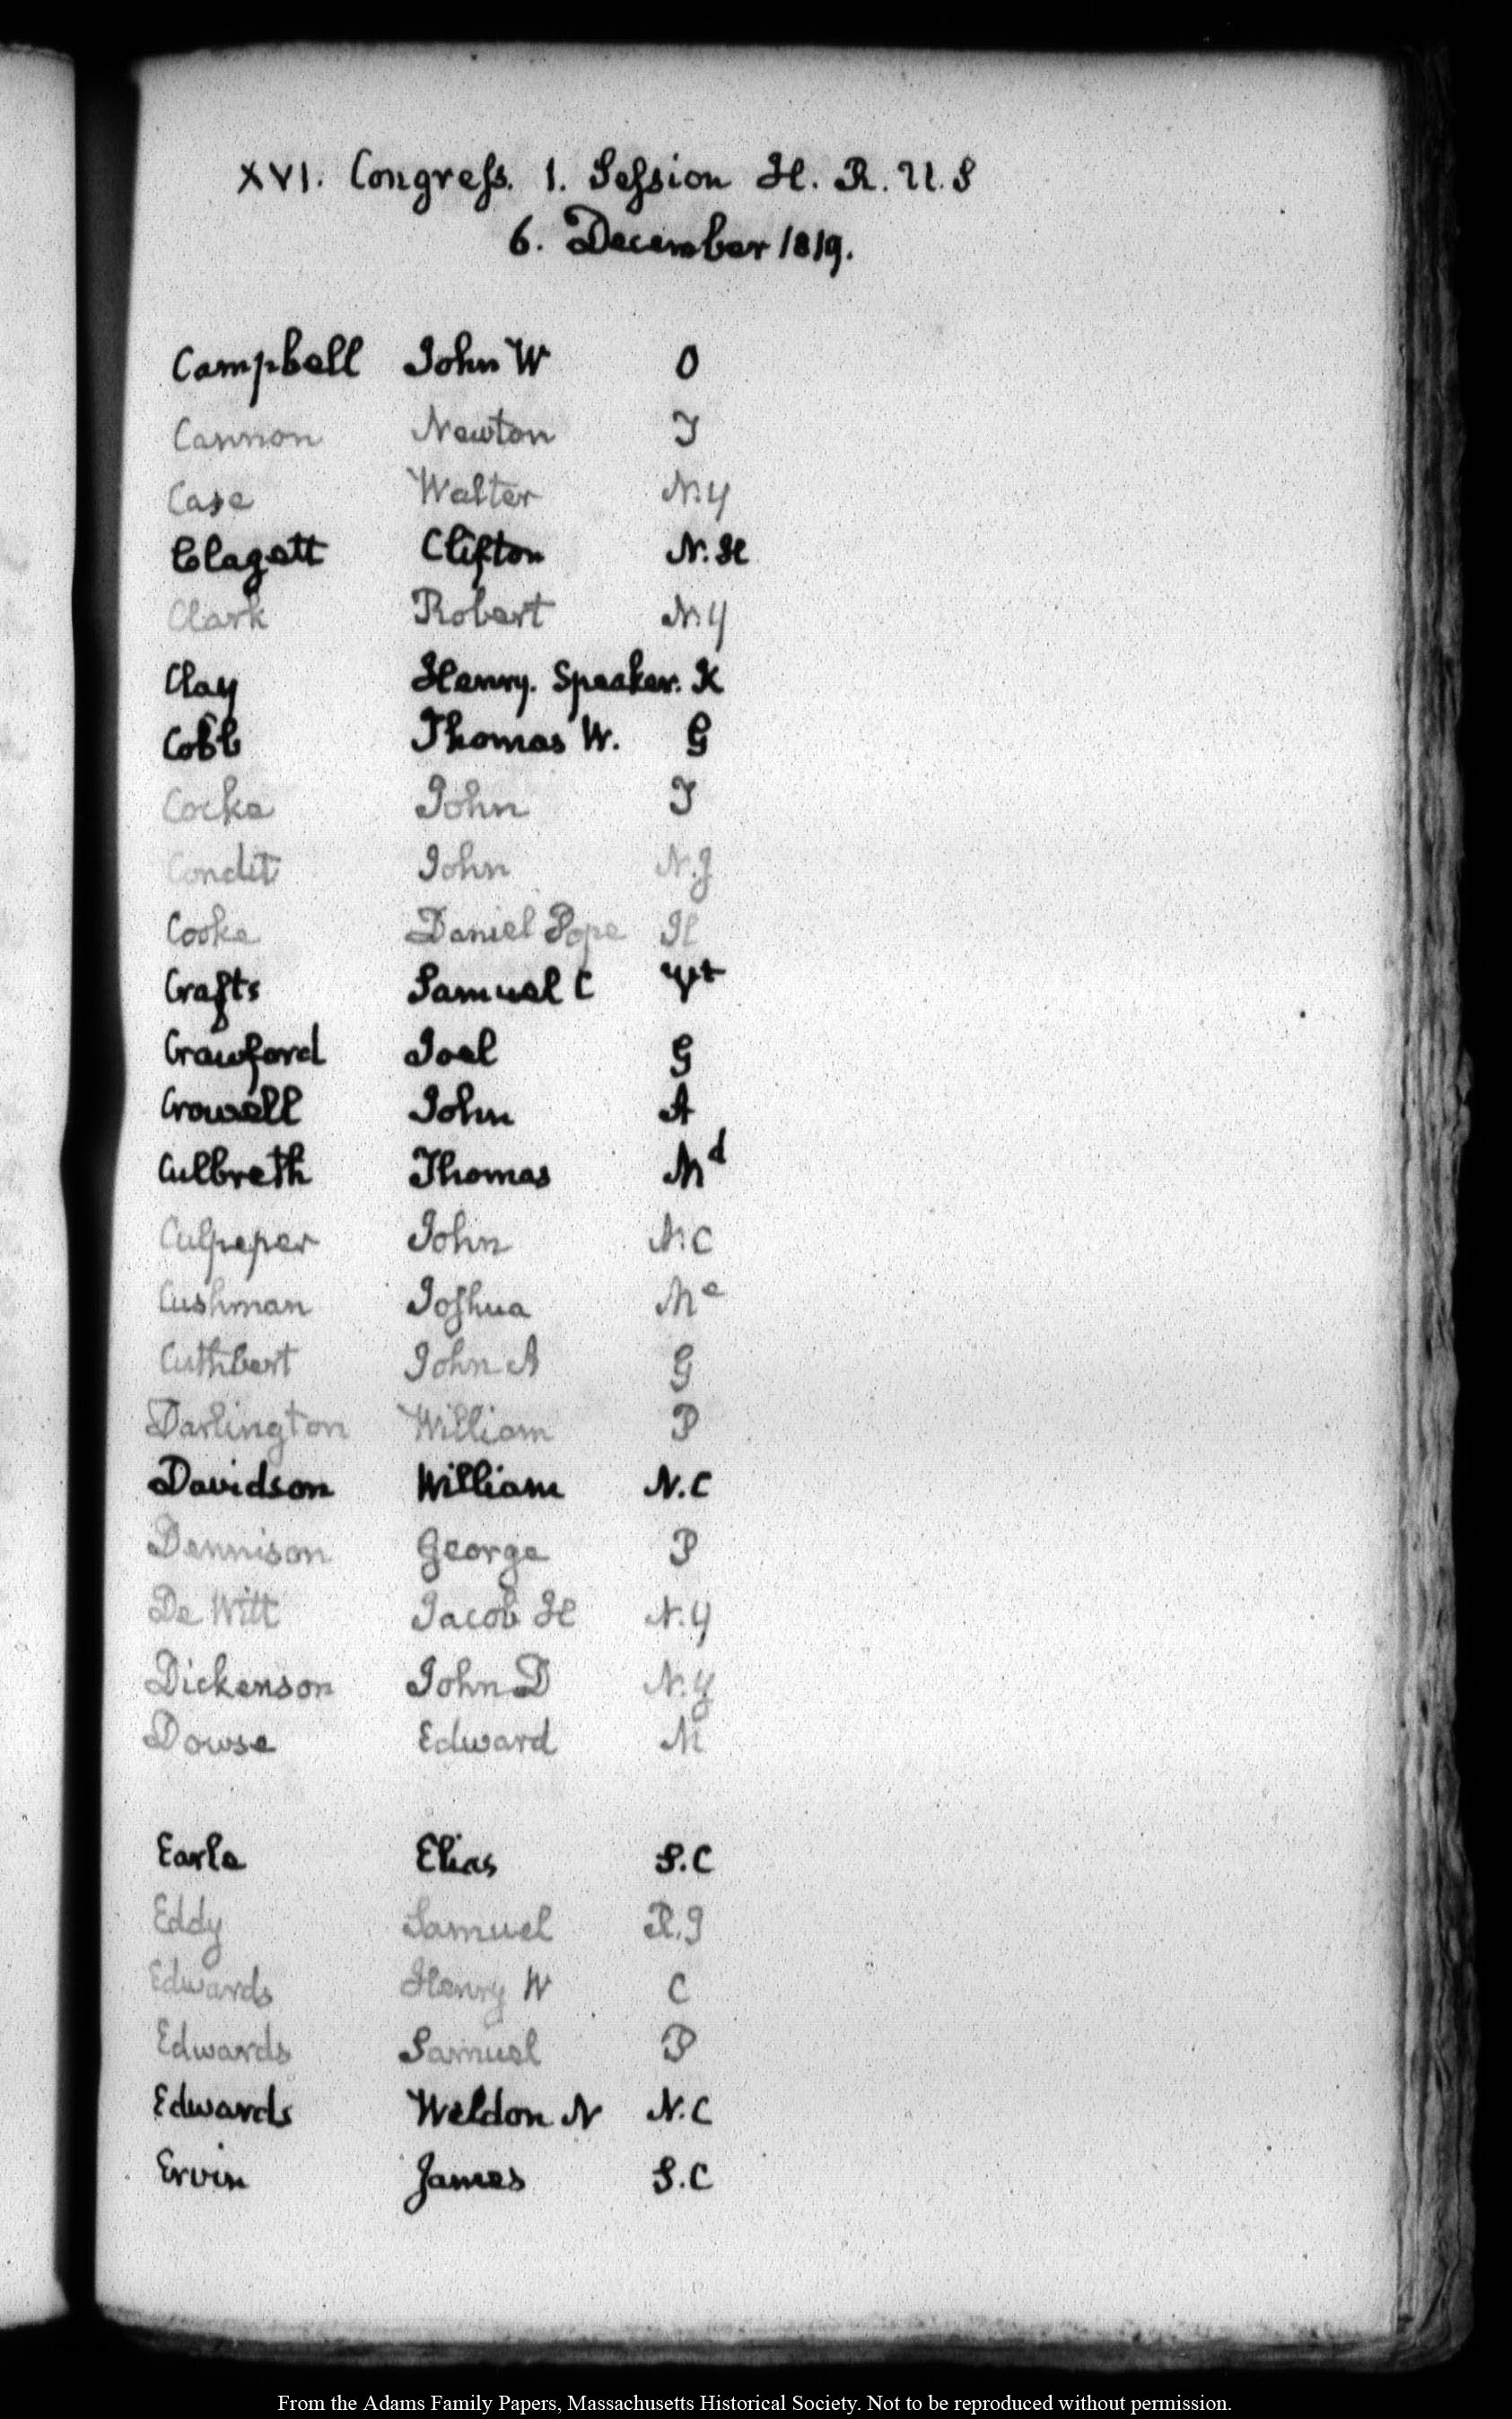 XVI. Congress. 1. Session H. R. U. S
6. December 1819.
Campbell John W O
Cannon Newton T
Case Walter N.Y
Clagett Clifton N. H
Clark Robert N.Y
Clay Henry. Speaker. K
Cobb Thomas W. G
Cocke John T
Condit John N.J
Cooke Daniel Pope Il
Crafts Samuel C Vt
Crawford Joel G
Crowell John A
Culbreth Thomas Md
Culpeper John N.C
Cushman Joshua Me
Cuthbert John A G
Darlington William P
Davidson William N.C
Dennison George P
De Witt Jacob H N.Y
Dickenson John D N.Y
Dowse Edward M
Earle Elias S.C
Eddy Samuel R.I
Edwards Henry W C
Edwards Samuel P
Edwards Weldon N N.C
Ervin James S.C
From the Adams Family Papers, Massachusetts Historical Society. Not to be reproduced without permission.